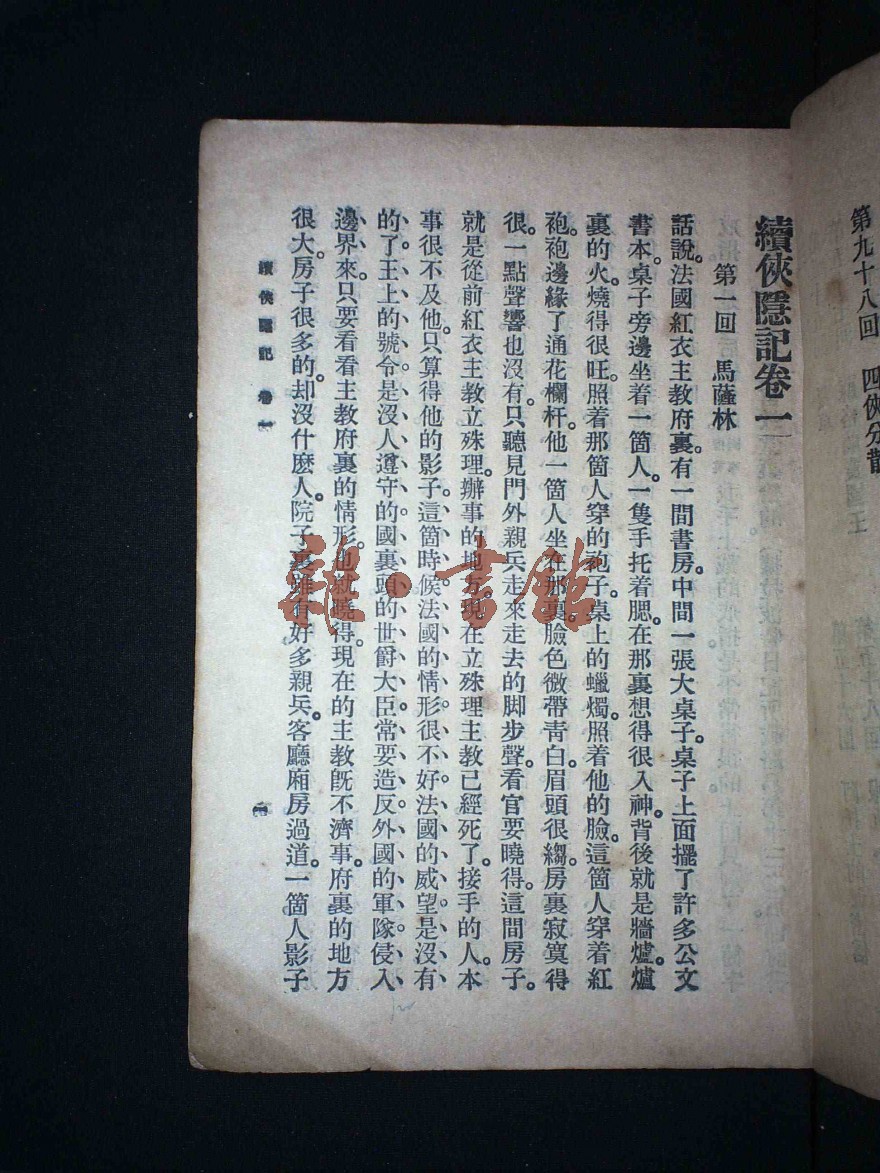 第九十八回　四俠分散
續俠隱記卷一
第一回　馬薩林
話說法國紅衣主教府裏。有一間書房。中間一張大桌子。桌子上面擺了許多公文
書本。桌子旁邊坐着一箇人。一隻手托着腮。在那裏想得很入神。背後就是牆爐。爐
裏的火燒得很旺。照着那箇人穿的袍子。桌上的蠟燭。照着他的臉。這箇人穿着紅
袍。袍邊緣了通花欄杆。他一箇人坐在那裏。臉色微帶靑白。眉頭很縐。房裏寂寞得
很。一點聲響也沒有。只聽見門外親兵走來走去的脚步聲。看官要曉得。這間房子。
就是從前紅衣主教立殊理。辦事的地方。現在立殊理主教已經死了。接手的人。本
事很不及他。只算得他的影子。這箇時候、法國的情形很不好、法國的威望是沒有、
的了、王上的號令、是沒人遵守的、國裏頭的世爵大臣、常要造反、外國的軍隊、侵入、
邊界來。只要看看主教府裏的情形。也就曉得。現在的主教旣不濟事。府裏的地方
很大。房子很多的。却沒什麽人。院子裏雖有好多親兵。客廳廂房過道。一箇人影子
續俠隱記　卷一
一
雜·書館